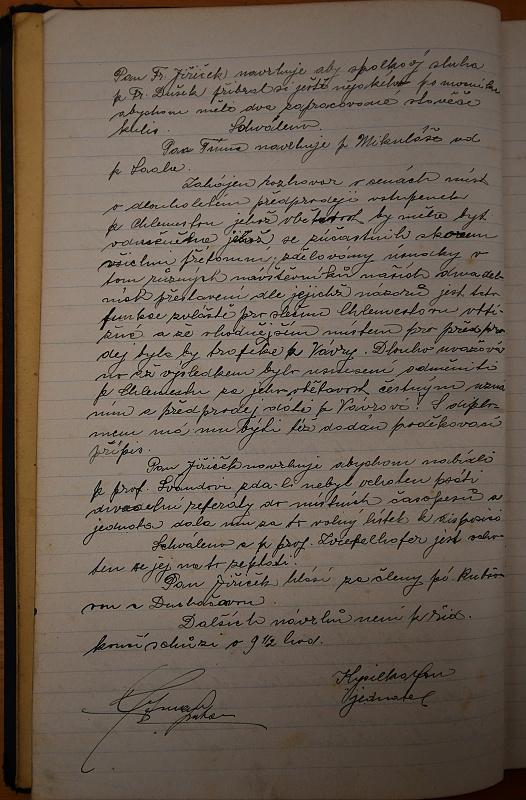 Pan Fr. Jiříček navrhuje aby spolkový sluha
p Fr. Dušek přibral si ještě nějakého pomocníka
abychom měli dva zapracované
Schváleno.
Pan Tůma navrhuje p Mikuláše od
p
Zahájen rozhovor o cenách míst
o dlouholetém předprodeji vstupenek
p Chlemestou jehož obětavost by měla být
odměněna se súčastnili skorem
všichni přítomní; zdělovány úsudky o
tom různých návštěvníků našich divadel
ních představení dle jejichž názorů jest tato
funkce zvláště pro slečnu
a že vhodnějším místem pro předpro
dej byla by trafika p Vávry. Dlouho uvažová
no až výsledkem bylo usnesení odměniti
p za jeho obětavost čestným uzná
ním a předprodej dáti p Vávrové! S diplo-
mem má mu býti též dodán poděkovací
přípis.
Pan Jiříček navrhuje abychom nabídli
p prof. Švandovi zda-li nebyl ochoten psáti
divadelní referáty do místních časopisů a
jednota dala mu za to volný lístek k disposici
Schváleno a p prof. Zwiefelhofer jest ocho-
ten se jej na to zeptati.
Pan Jiříček hlásí za členy pí.
a
Dalších návrhů není před.
končí schůzi o 9 1/2 hod.
jednatel